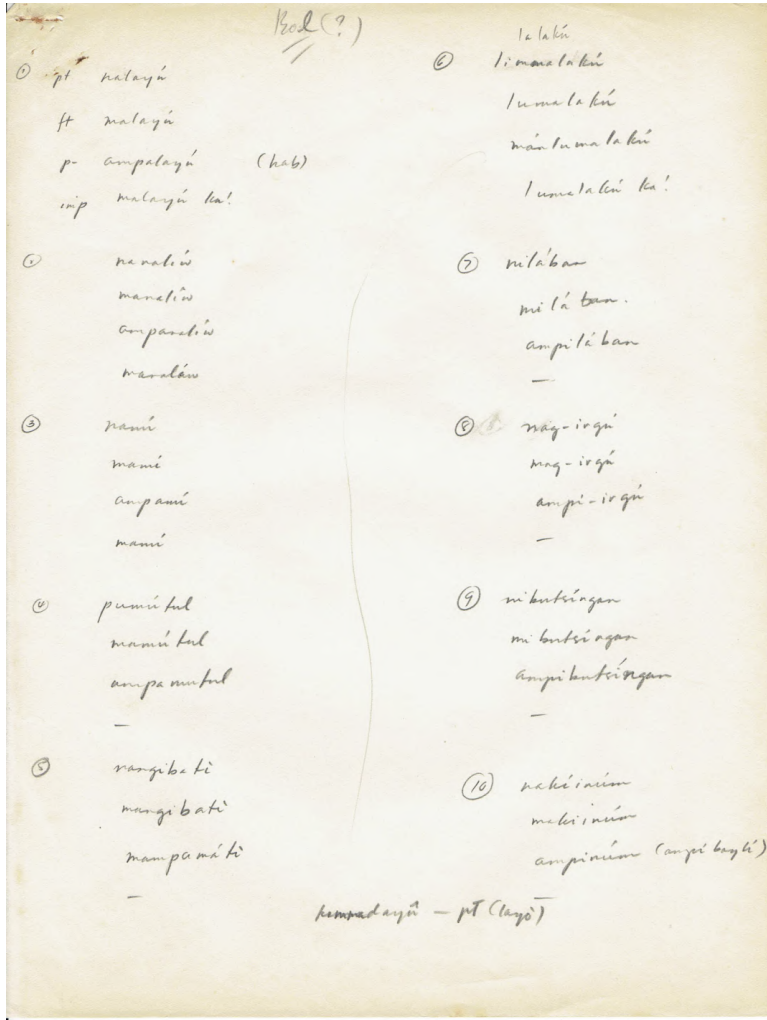 Bol (?)
① pt nalayú
ft malayú
p- ampalayú (hab)
imp malayú ka!
② nanalíw
manalíw
ampanalíw
manalíw
③ namí
mamí
ampamí
mamí
④ pumútul
mamútul
ampamutul
—
⑤ nangibati
mangibati
mampamáti
—
lalakú
⑥ limmalakú
lumalakú
mánlumalakú
lumalakú ka!
⑦ nilában
milában.
ampilában
—
⑧ nag-irgú
mag-irgú
ampi-irgú
—
⑨ nibutsíngan
mibutsíngan
ampibutsíngan
—
⑩ nakiinúm
makiinúm
ampinúm
—
dayú — pt (layô)